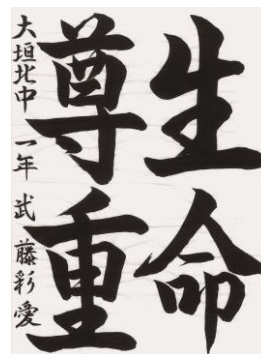 生命
尊重
大垣北中 一年 武藤彩愛